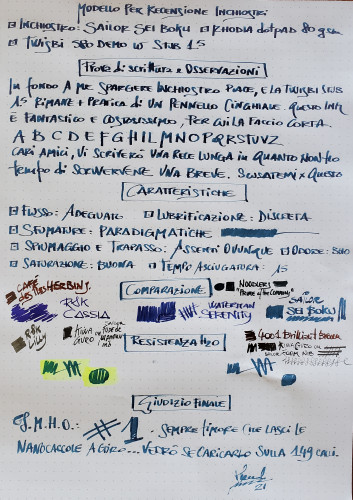 MODELLO PER RECENSIONE INCHIOSTRI
INCHIOSTRO: SAILOR SEI BOKU RHODIA dotPAD 80 gsm
TWISBI 580 DEMO W STUB 1.5
Prove di scrittura e Osservazioni
IN FONDO A ME SPARGERE INCHIOSTRO PIACE, E LA TWISBI STUB
1.5 RIMANE + PRATICA DI UN PENNELLO CINGHIALE. QUESTO INK
È FANTASTICO E COSTOSISSIMO, PER CUI LA FACCIO CORTA.
A B C D E F G H I L M N O P Q R S T U V Z
CARI AMICI, VI SCRIVERÒ UNA RECE LUNGA IN QUANTO NON HO
TEMPO DI SCRIVERVENE UNA BREVE. SCUSATEMI X QUESTO
CARATTERISTICHE
FLUSSO: ADEGUATO LUBRIFICAZIONE: DISCRETA
SFUMATURE: PARADIGMATICHE
SPIUMAGGIO E TRAPASSO: ASSENTI OVUNQUE ODORE:
SATURAZIONE: BUONA TEMPO ASCIUGATURA: 15
COMPARAZIONE
CAFÉ DES ÎLES HERBIN J.
R&K CASSIA
NOODLER'S
WATERMAN SERENITY
SAILOR SEI BOKU
R&K LILLY
RESISTENZA H2O
4001 BRILLIANT BROWN
GIUDIZIO FINALE
I.M.H.O.: #1. SEMPRE TIMORE CHE LASCI LE
NANOCACCOLE A GIRO... VEDRÒ SE CARICARLO SULLA 149 CALLI.
21